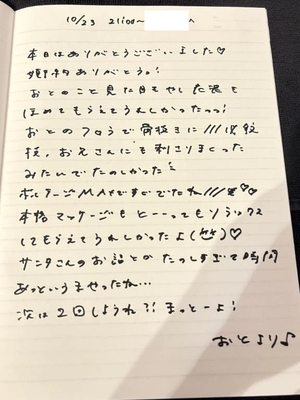 10/23 21:00〜
本日はありがとうございました♡
ありがとう。!
おとのこと見た目もやしも
ほめてもらえてうれしかったっ!
おとのフロうで骨抜きに///
お兄さんにも刺さりまくった
みたいでたのしかった
MAXですごでたね///♡♡
本格マッサージもとーーってもリラックス
してもらえてうれしかったよ(笑)♡
サンタさんのお話とかたのしすぎて時間
あっというまやったね...
次は2回しようね?! まっとーよ!
おとより♪